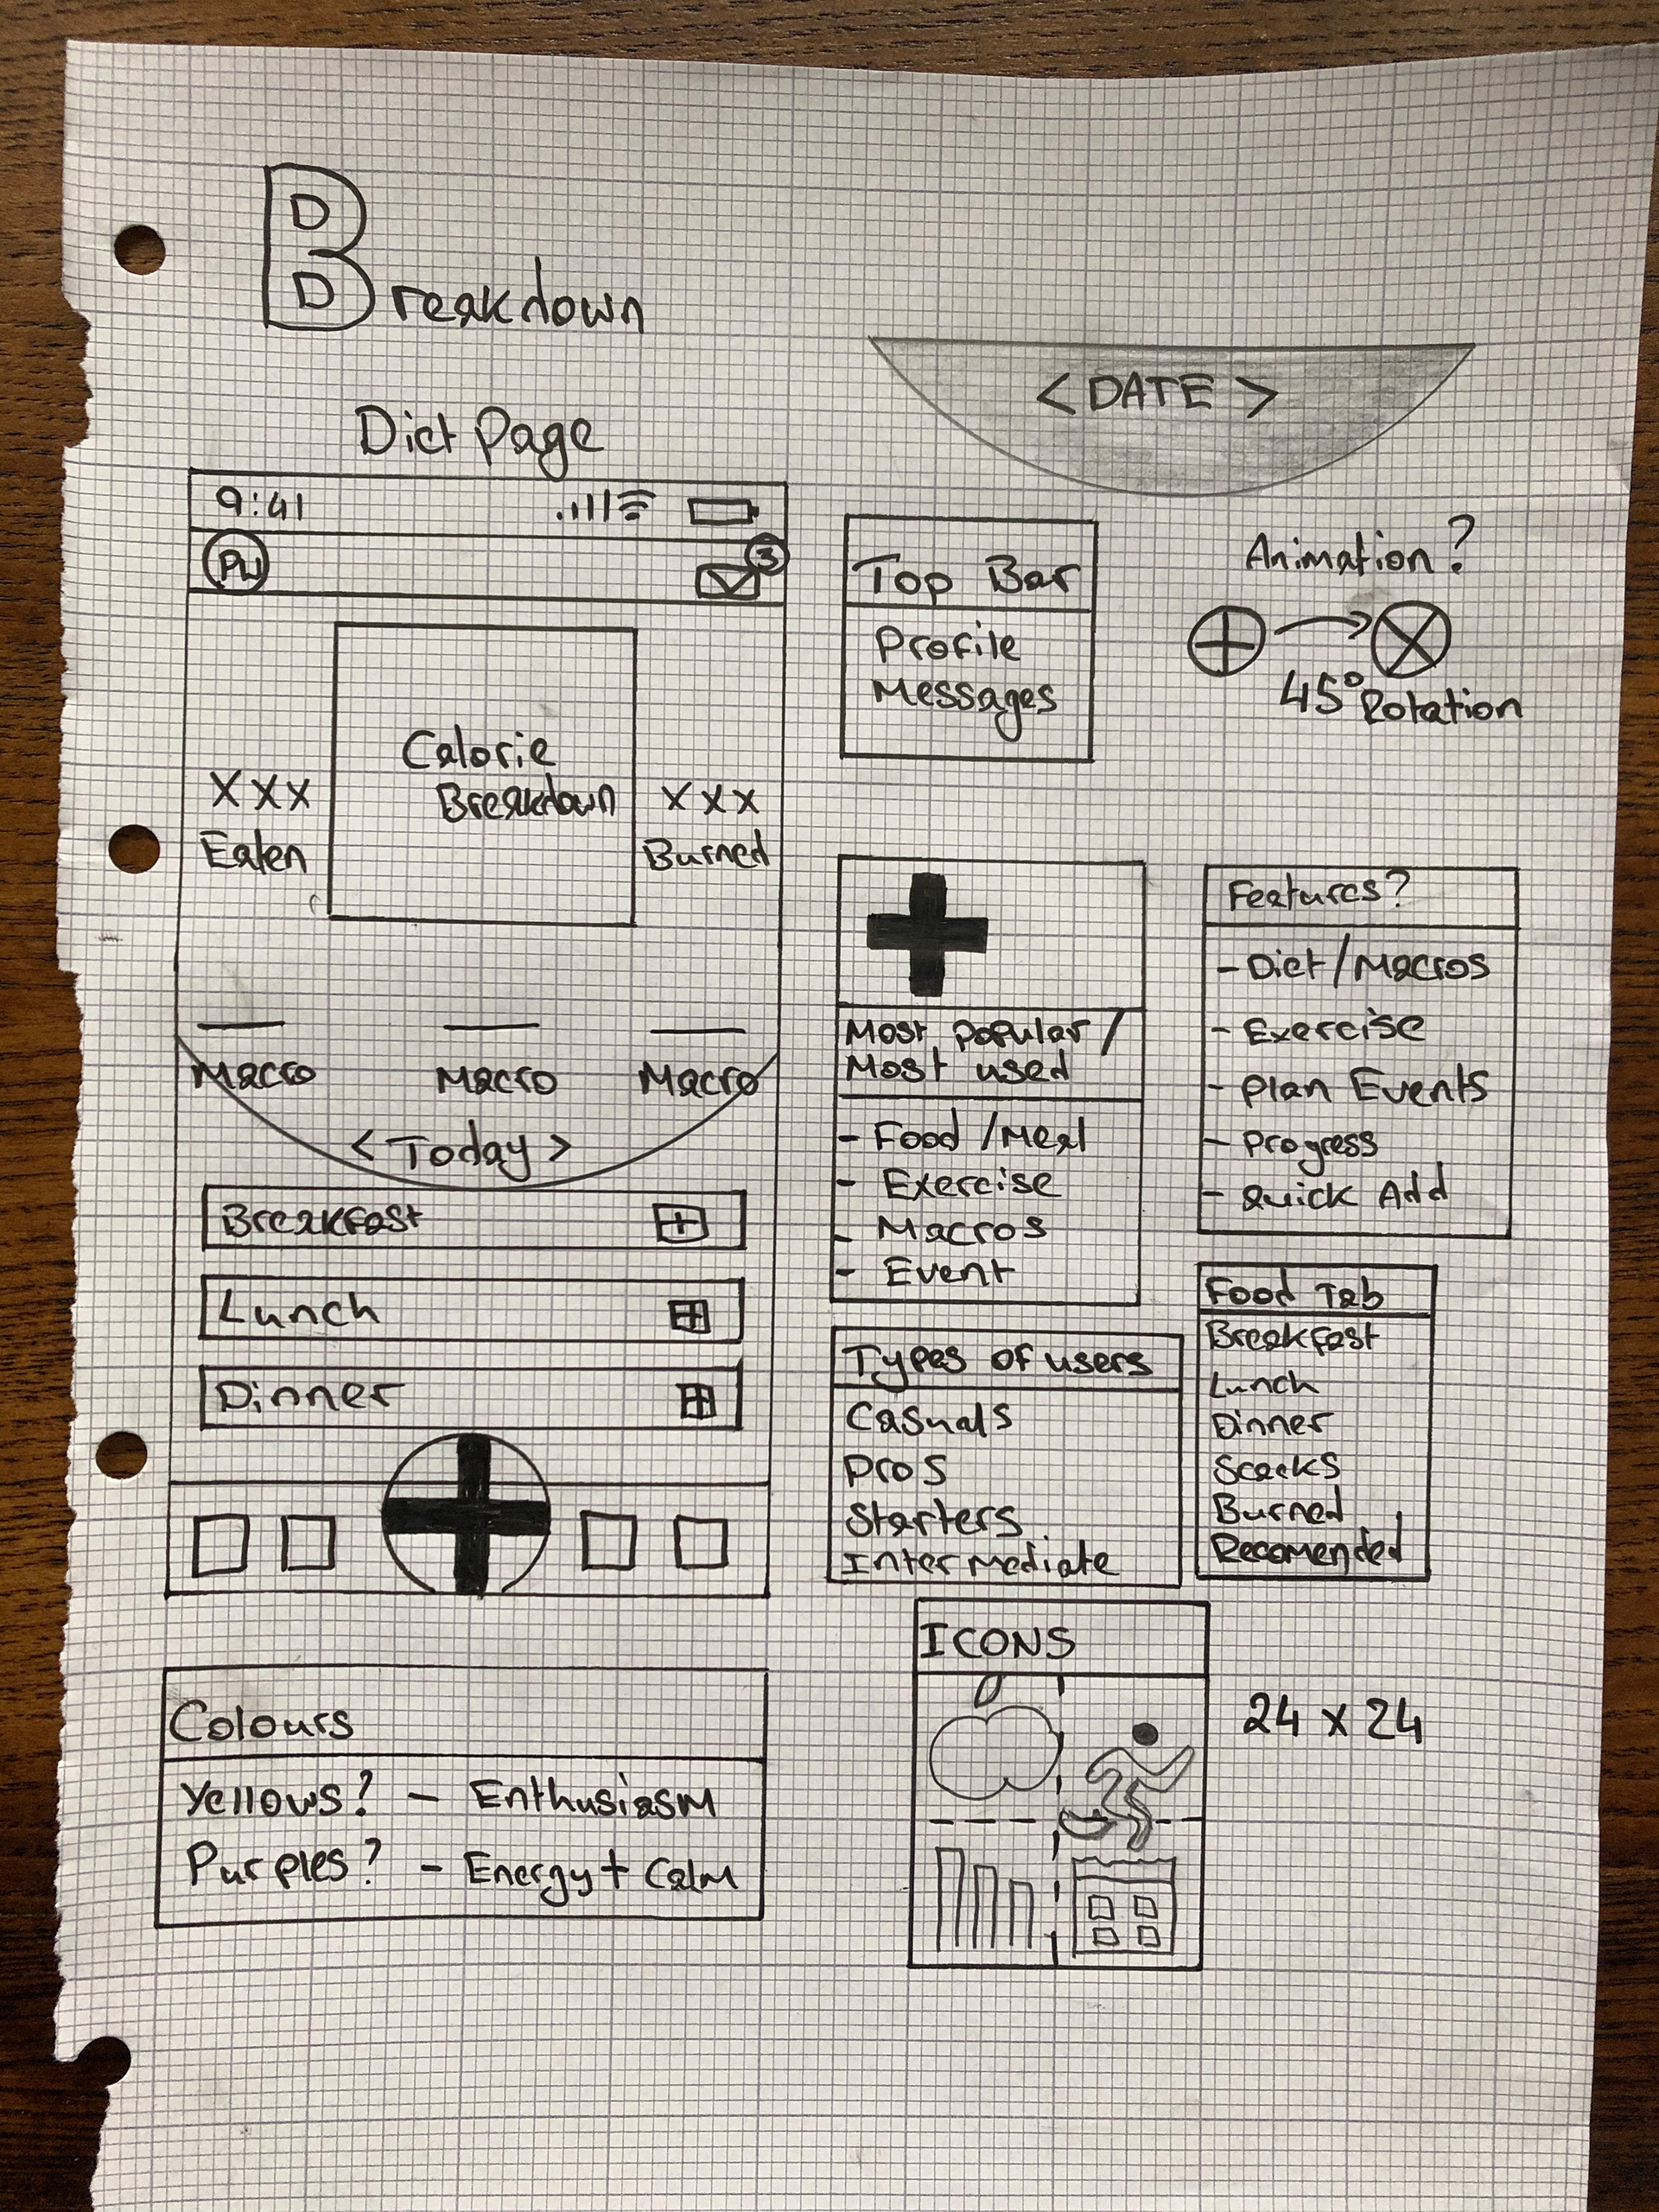 Breakdown
Diet Page
9:41
PW
3
Calorie
Breakdown
XXX
Eaten
XXX
Burned
Macro
Macro
Macro
< Today >
Breakfast
Lunch
Dinner
Colours
Yellows? - Enthusiasm
Purples? - Energy + Calm
< DATE >
Top Bar
Profile
Messages
Animation?
45° Rotation
Most popular /
Most used
- Food / Meal
- Exercise
- Macros
- Event
Features?
- Diet / Macros
- Exercise
- Plan Events
- Progress
- Quick Add
Types of users
Casuals
Pros
Starters
Intermediate
Food Tab
Breakfast
Lunch
Dinner
Scacks
Burned
Recomended
ICONS
24 x 24